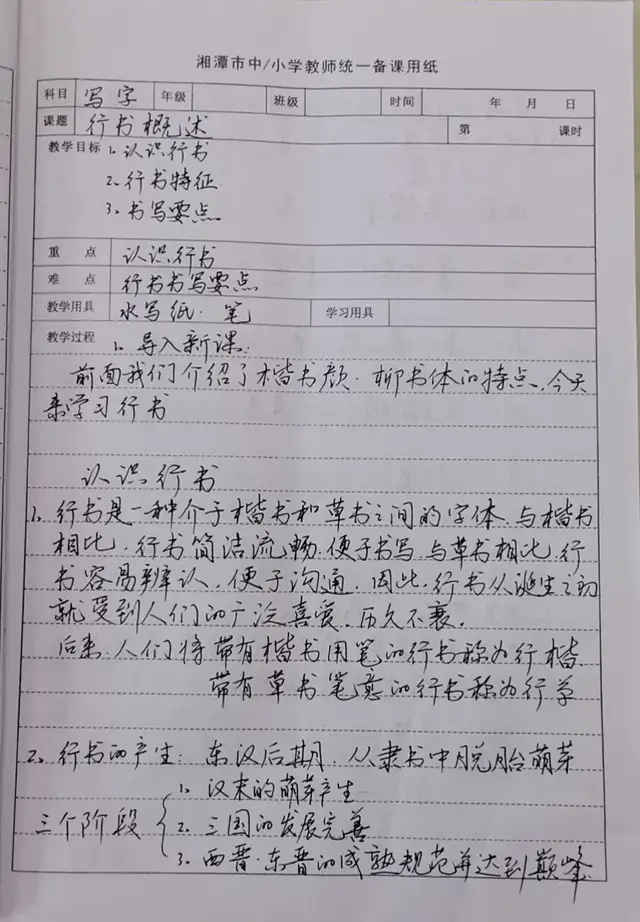 湘潭市中/小学教师统一备课用纸
科目 写字 年级 班级 时间 年 月 日
课题 行书概述 第 课时
教学目标 1、认识行书
2、行书特征
3、书写要点
重 点 认识行书
难 点 行书书写要点
教学用具 水写纸·笔 学习用具
教学过程 1、导入新课:
前面我们介绍了楷书颜·柳书体的特点,今天
来学习行书
认识行书
1、行书是一种介于楷书和草书之间的字体,与楷书
相比,行书简洁流畅,便于书写,与草书相比,行
书容易辨认,便于沟通,因此,行书从诞生之初
就受到人们的广泛喜爱,历久不衰。
后来,人们将带有楷书用笔的行书称为行楷
带有草书笔意的行书称为行草
2、行书的产生:东汉后期,从隶书中脱胎萌芽
三个阶段 { 1、汉末的萌芽产生
2、三国的发展完善
3、西晋·东晋的成熟规范并达到巅峰